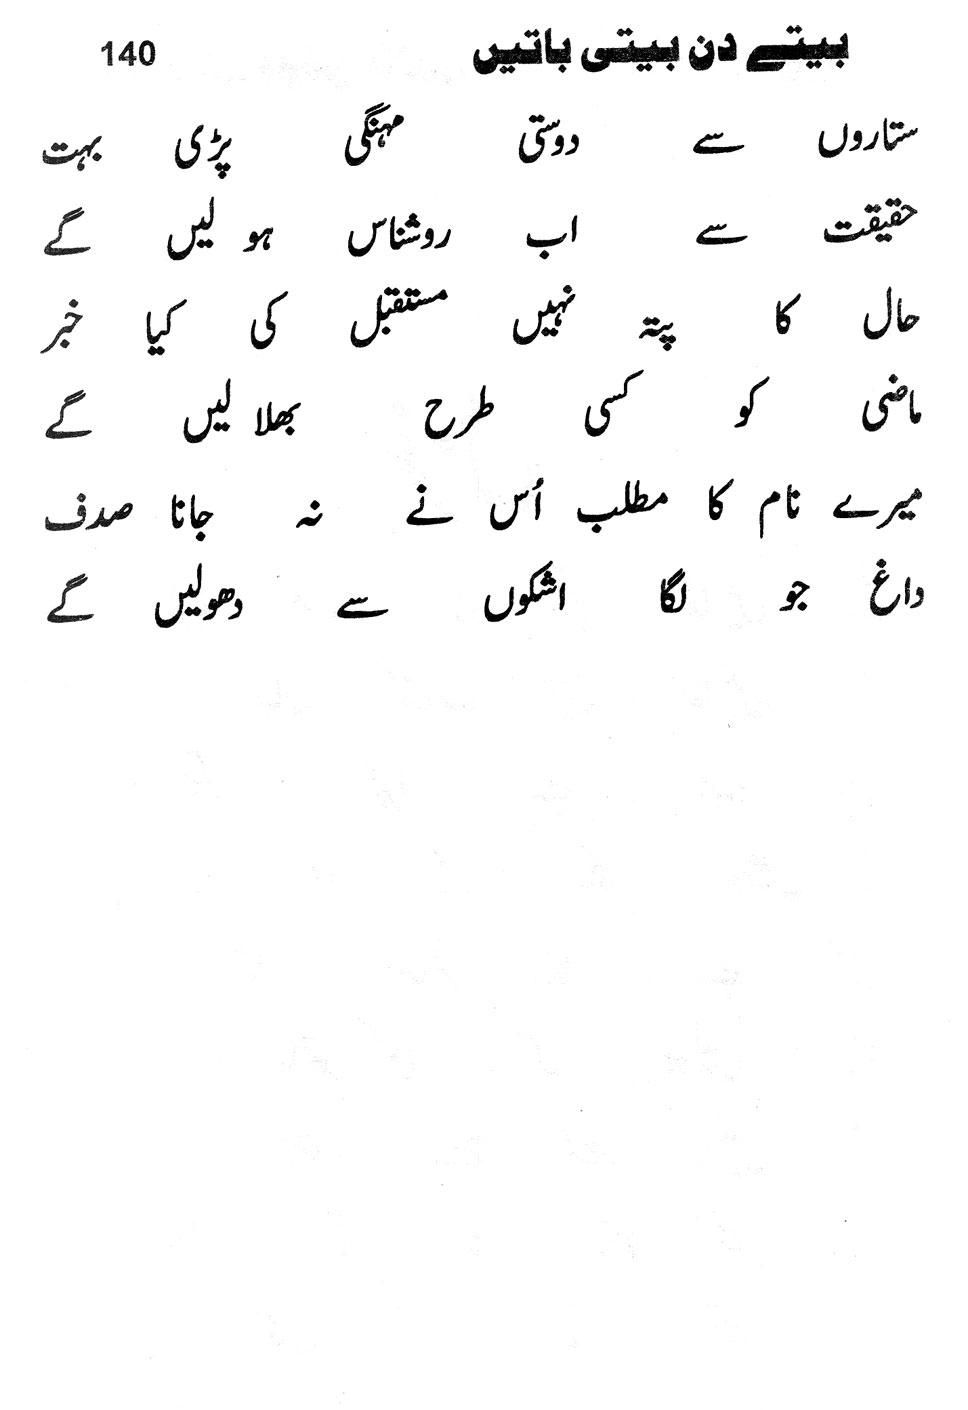 بیتے دن بیتی باتیں 140
ستاروں سے دوستی مہنگی پڑی بہت
حقیقت سے اب روشناس ہو لیں گے
حال کا پتہ نہیں مستقبل کی کیا خبر
ماضی کو کسی طرح بھلا لیں گے
میرے نام کا مطلب اُس نے نہ جانا صدف
داغ جو لگا اشکوں سے دھولیں گے